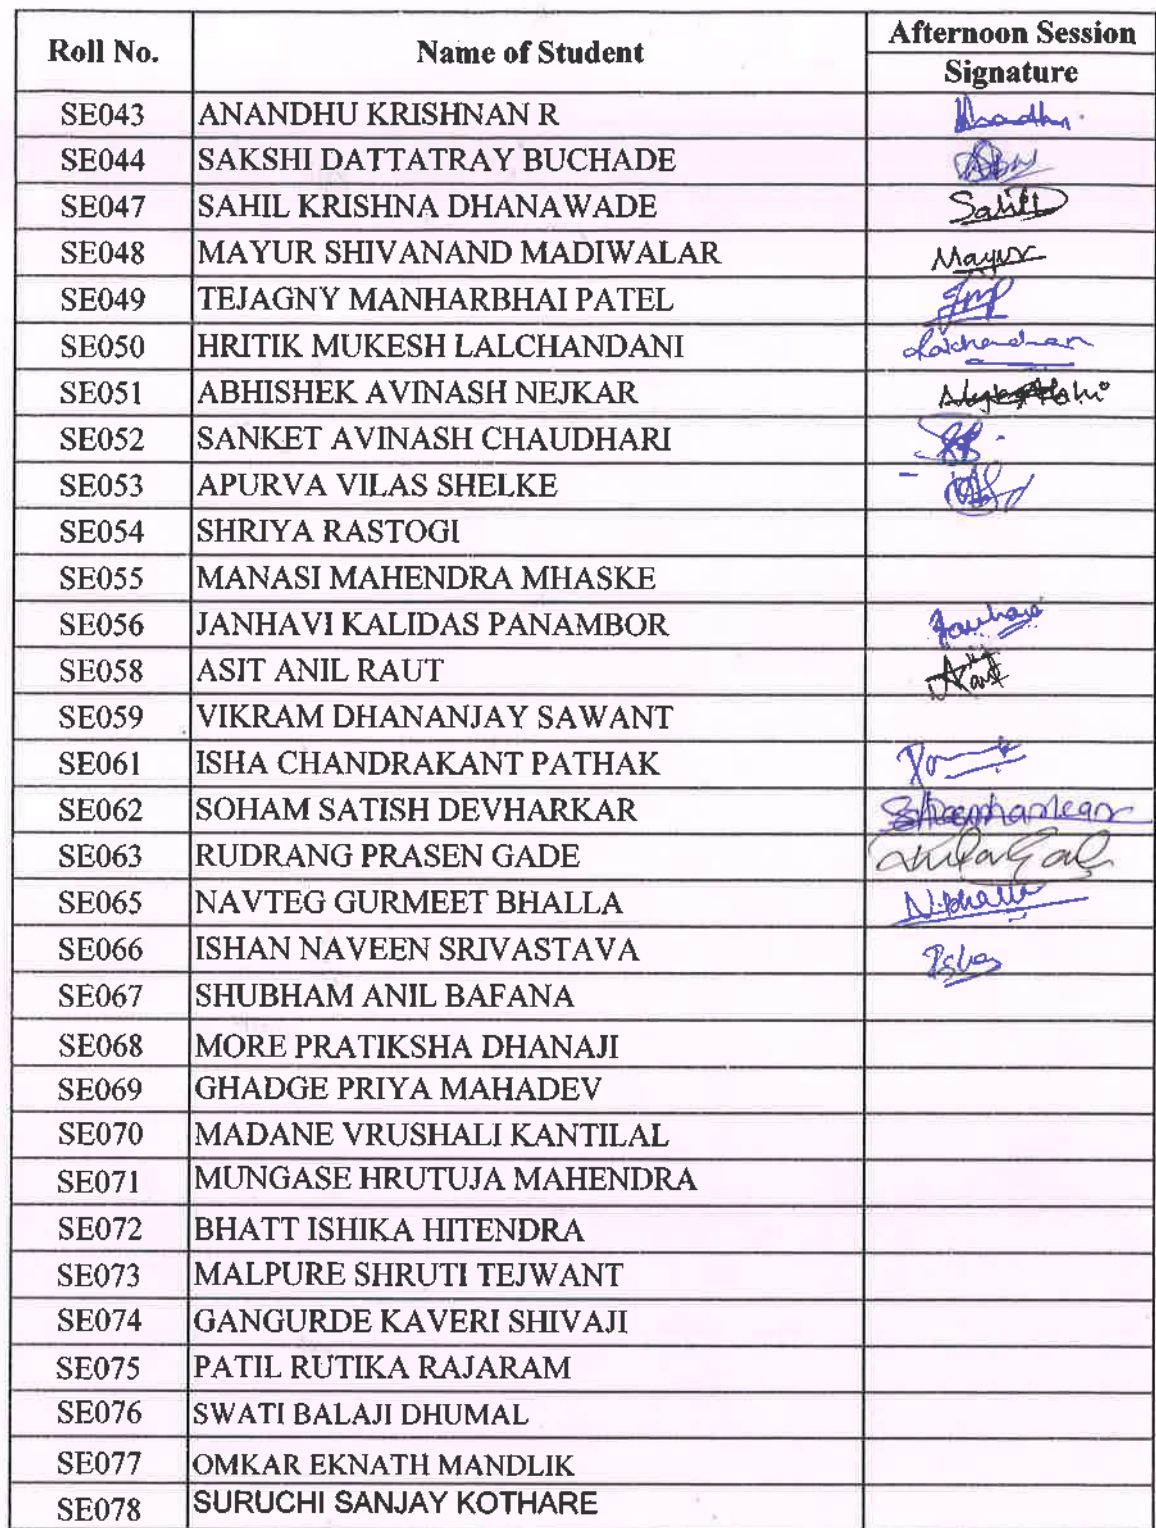 Roll No. Name of Student Afternoon Session
Signature
SE043 ANANDHU KRISHNAN R
SE044 SAKSHI DATTATRAY BUCHADE
SE047 SAHIL KRISHNA DHANAWADE Sahil
SE048 MAYUR SHIVANAND MADIWALAR Mayur
SE049 TEJAGNY MANHARBHAI PATEL
SE050 HRITIK MUKESH LALCHANDANI
SE051 ABHISHEK AVINASH NEJKAR
SE052 SANKET AVINASH CHAUDHARI
SE053 APURVA VILAS SHELKE
SE054 SHRIYA RASTOGI
SE055 MANASI MAHENDRA MHASKE
SE056 JANHAVI KALIDAS PANAMBOR
SE058 ASIT ANIL RAUT
SE059 VIKRAM DHANANJAY SAWANT
SE061 ISHA CHANDRAKANT PATHAK
SE062 SOHAM SATISH DEVHARKAR
SE063 RUDRANG PRASEN GADE
SE065 NAVTEG GURMEET BHALLA
SE066 ISHAN NAVEEN SRIVASTAVA
SE067 SHUBHAM ANIL BAFANA
SE068 MORE PRATIKSHA DHANAJI
SE069 GHADGE PRIYA MAHADEV
SE070 MADANE VRUSHALI KANTILAL
SE071 MUNGASE HRUTUJA MAHENDRA
SE072 BHATT ISHIKA HITENDRA
SE073 MALPURE SHRUTI TEJWANT
SE074 GANGURDE KAVERI SHIVAJI
SE075 PATIL RUTIKA RAJARAM
SE076 SWATI BALAJI DHUMAL
SE077 OMKAR EKNATH MANDLIK
SE078 SURUCHI SANJAY KOTHARE